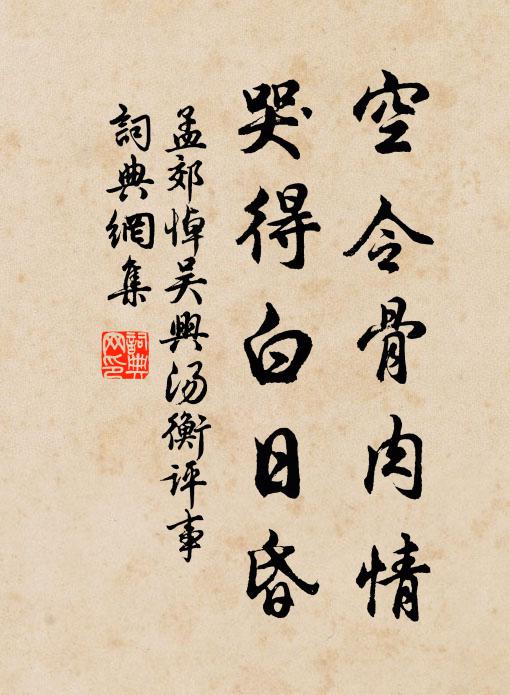 空令骨肉情
哭得白日昏
孟郊悼吴興汤衡评事
詞典網集
詞典
网印